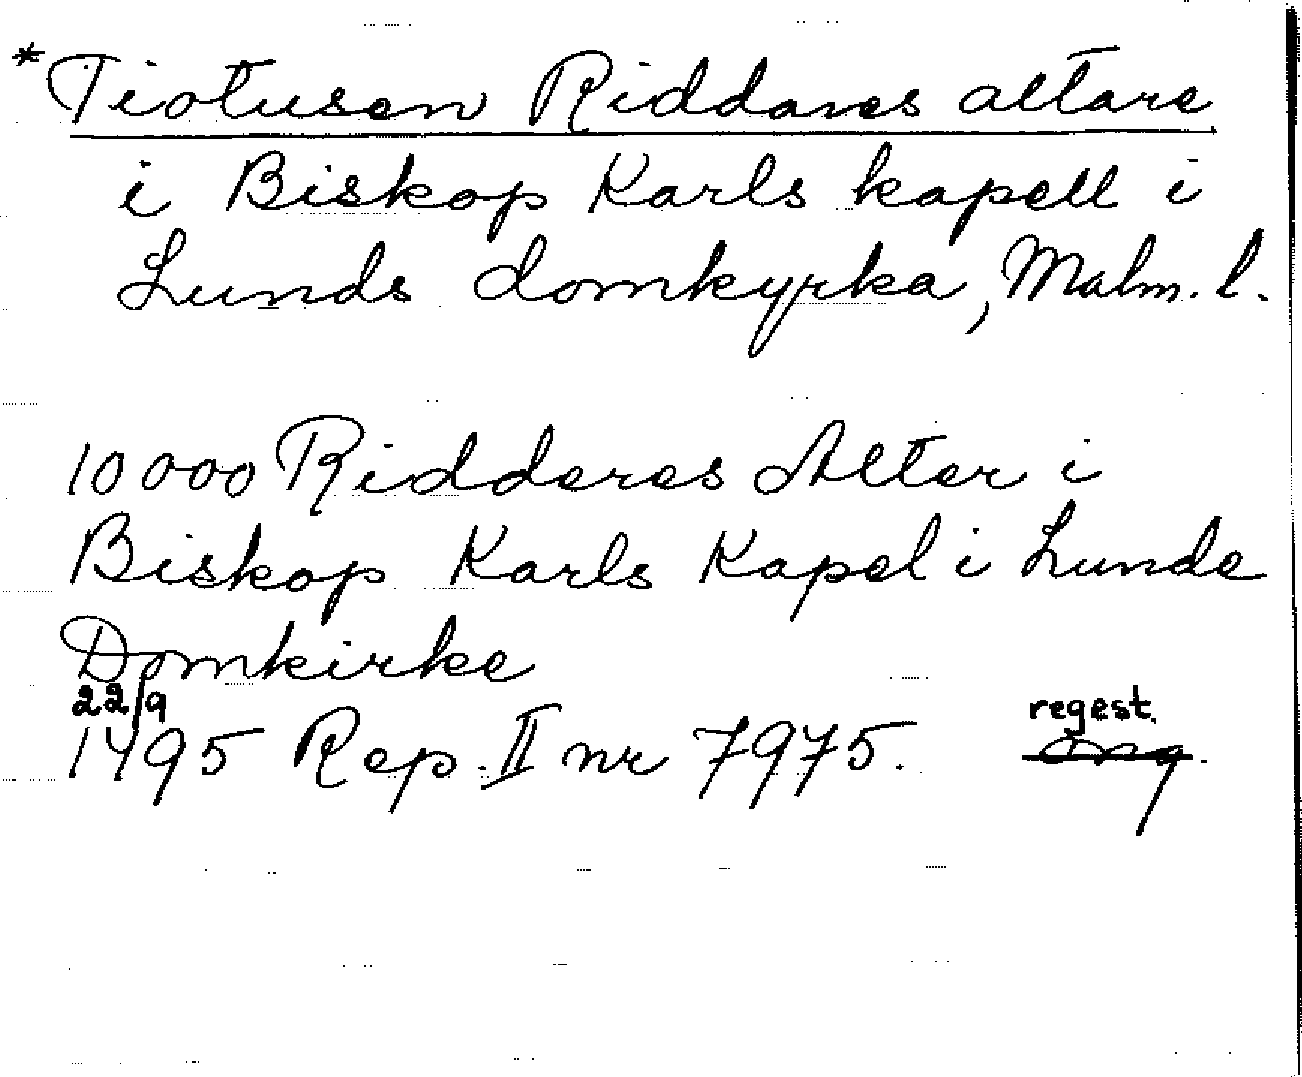 * Tiotusen Riddares altare
i Biskop Karls kapell i
Lunds domkyrka, Malm. l.
10 000 Ridderes Alter i
Biskop Karls Kapel i Lunde
Domkirke
22/9
1495 Rep. II nr 7975. regest.